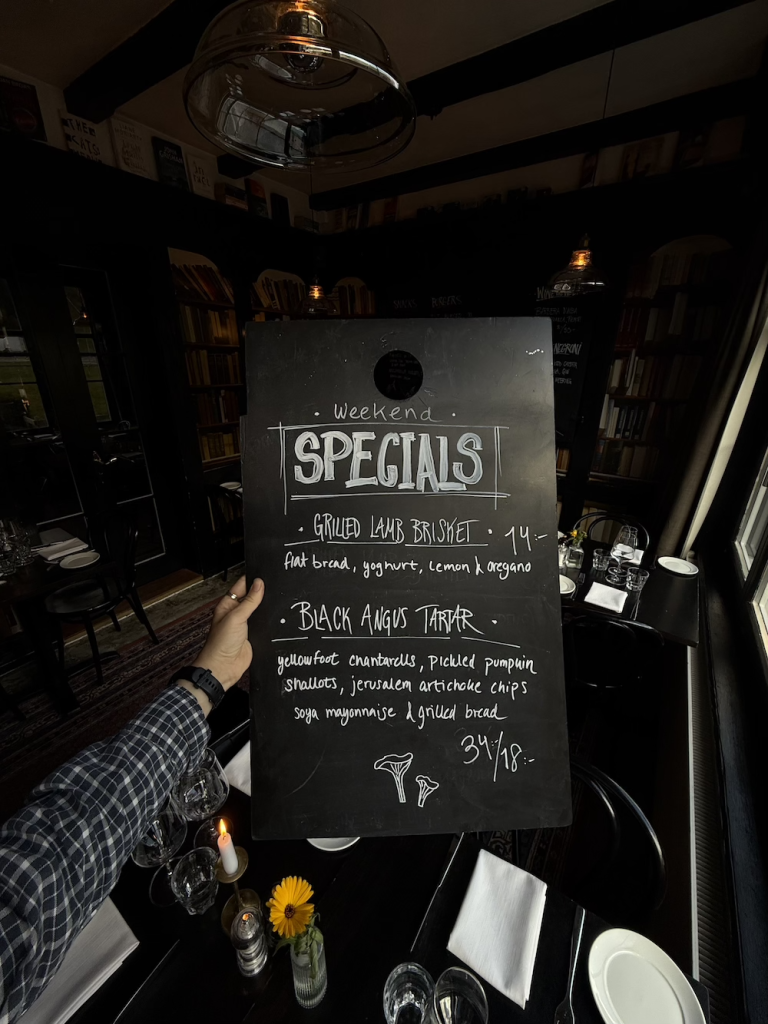 · Weekend ·
SPECIALS
· GRILLED LAMB BRISKET · 14:-
flat bread, yoghurt, lemon & oregano
· BLACK ANGUS TARTAR ·
yellowfoot chantarells, pickled pumpkin
shallots, jerusalem artichoke chips
soya mayonnaise & grilled bread
34/18:-